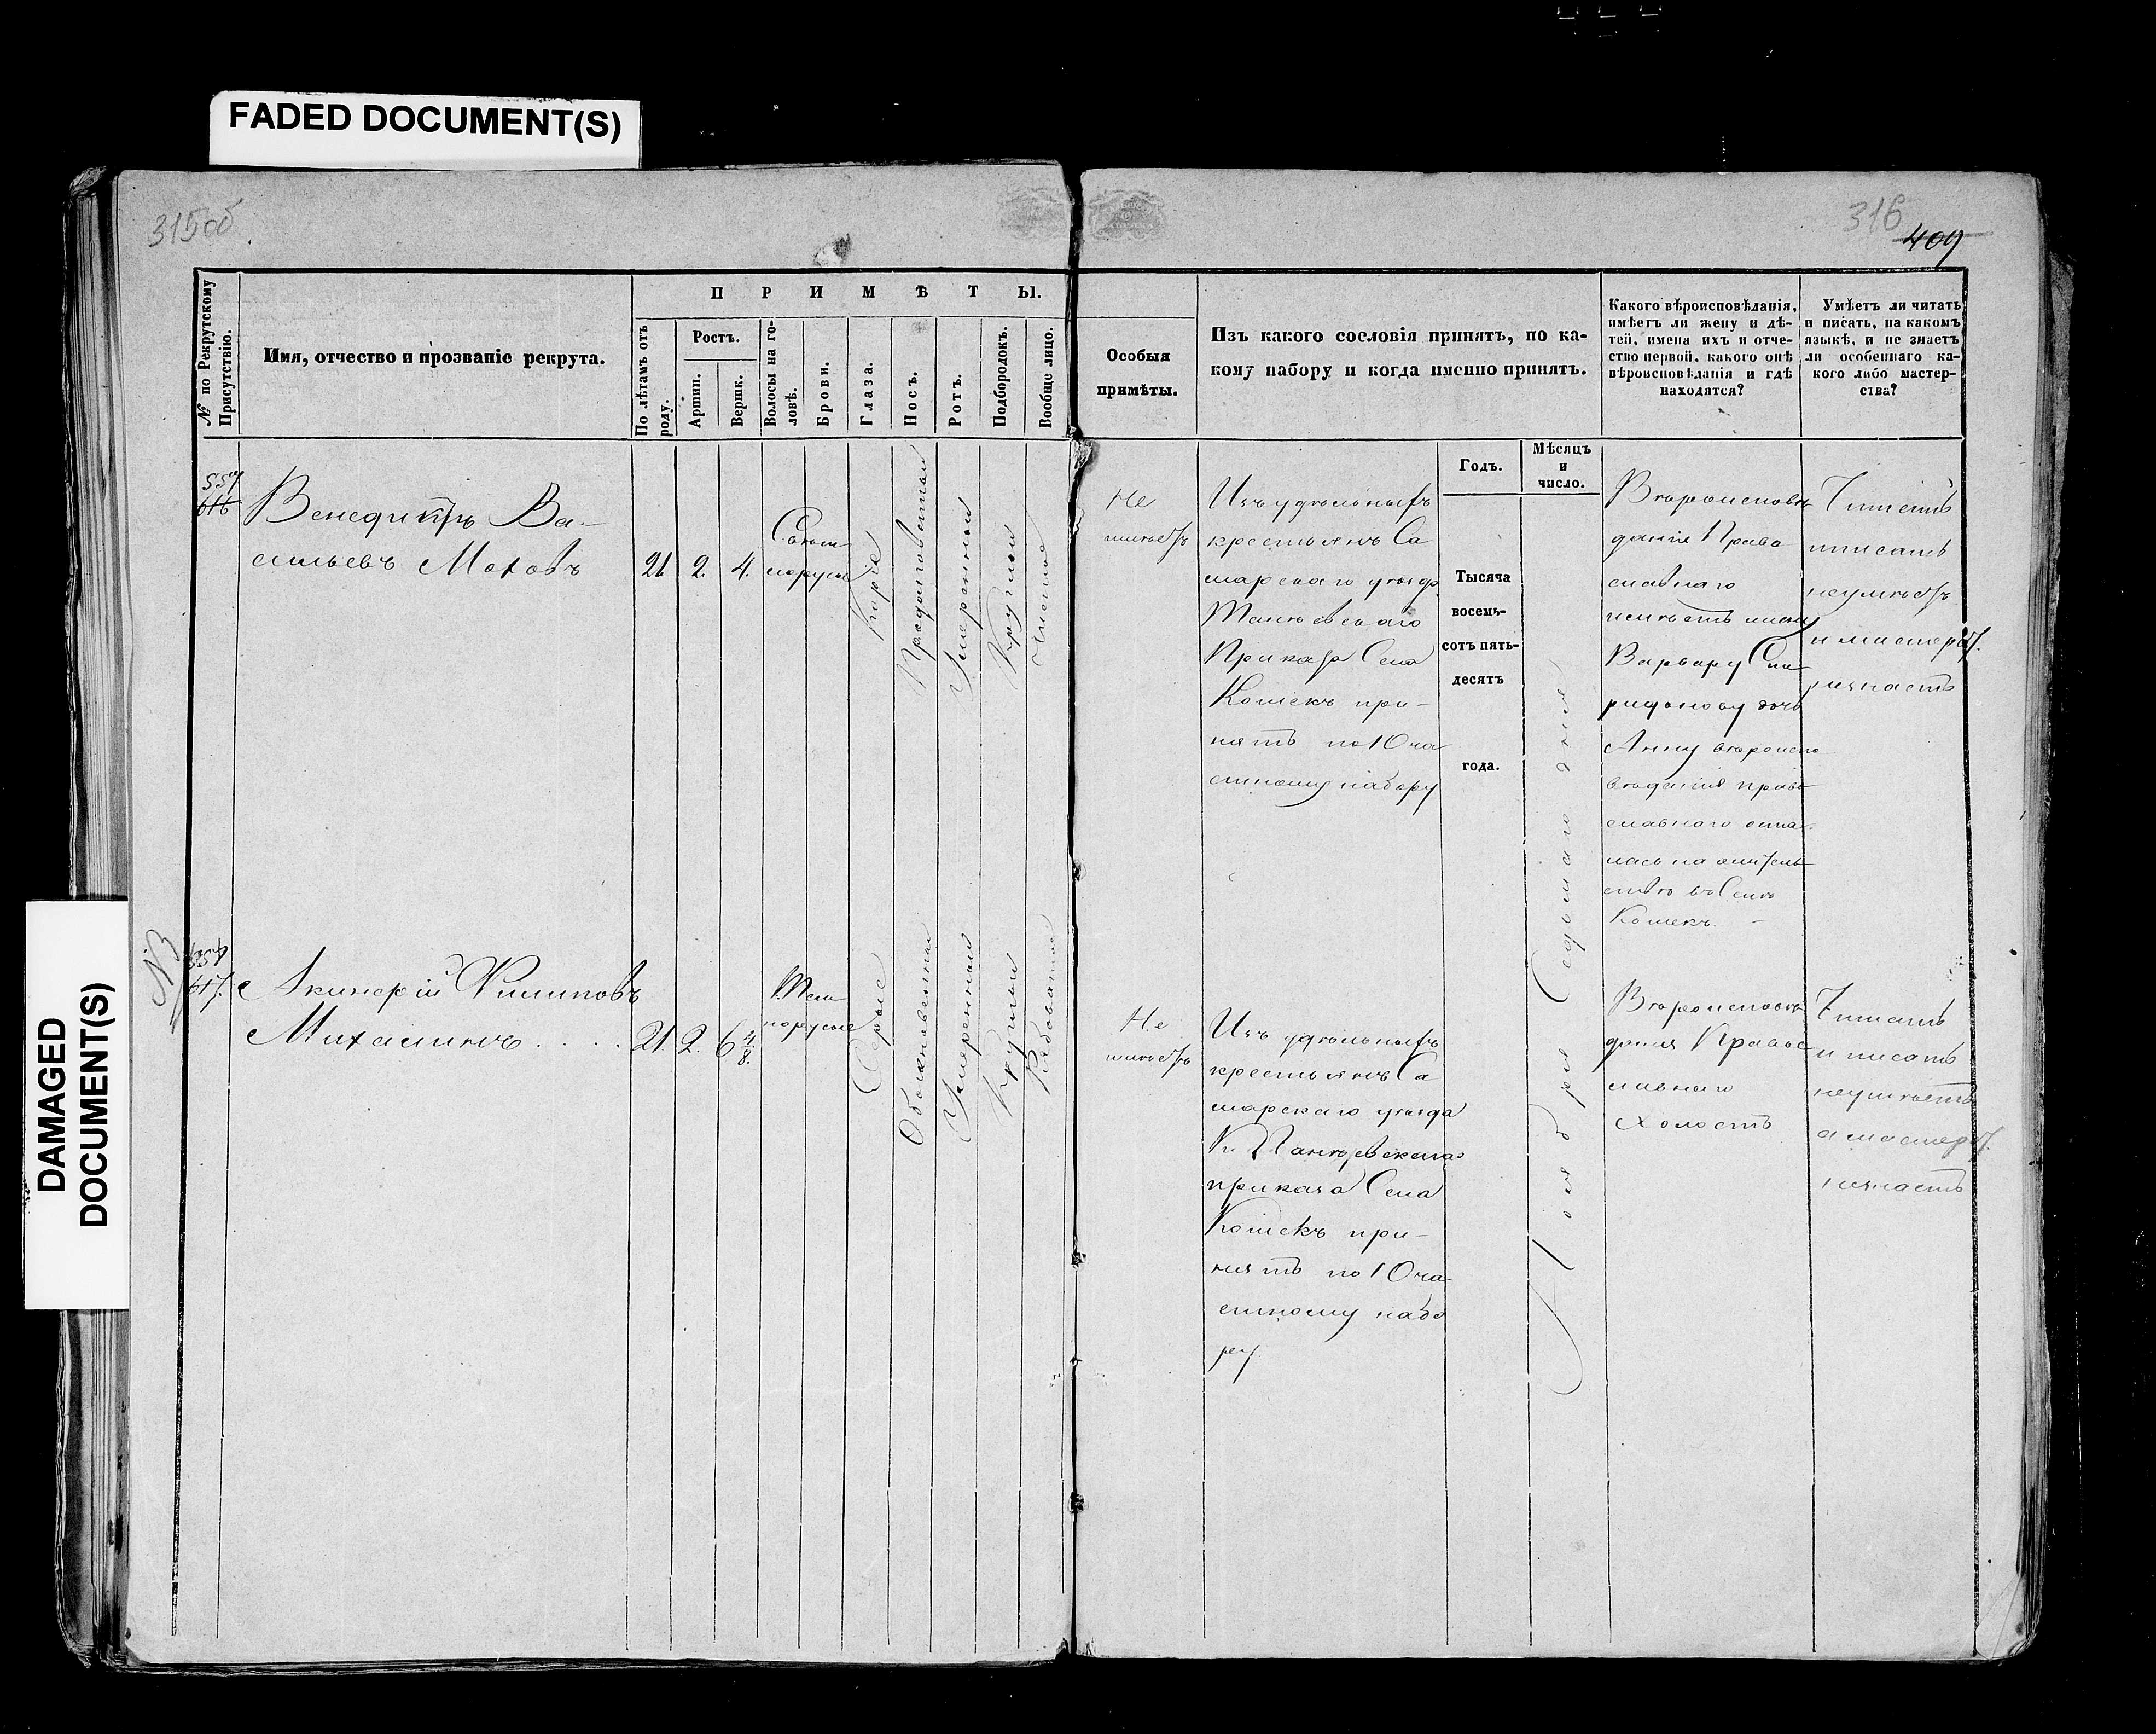 FADED DOCUMENT(S)
DAMAGED
DOCUMENT(S)
315об
316
409
№ по Рекрутскому
Присутствію.
Имя, отчество и прозваніе рекрута.
П Р И М Ѣ Т Ы.
По лѣтамъ отъ
роду.
Ростъ.
Аршин.
Вершк.
Волосы на го-
ловѣ.
Брови.
Глаза.
Носъ.
Ротъ.
Подбородокъ.
Вообще лицо.
Особыя
примѣты.
Изъ какого сословія принятъ, по ка-
кому набору и когда именно принятъ.
Какого вѣроисповѣданія,
имѣетъ ли жену и дѣ-
тей, имена ихъ и отче-
ство первой, какого онѣ
вѣроисповѣданія и гдѣ
находятся?
Умѣетъ ли читать
и писать, на какомъ
языкѣ, и не знаетъ
ли особеннаго ка-
кого либо мастер-
ства?
Годъ.
Мѣсяцъ
и
число.
Тысяча
восемь-
сотъ пять-
десятъ
года.
Ноября Седьмаго дня
557
616
Венедиктъ Ва-
сильевъ Моховъ
21 2. 4.
Свѣт
лорусые
Каріе
Продолговатый
Умеренный
Круглый
Чистое
Не
имѣетъ
Изъ удѣльныхъ
крестьянъ Са
марскаго уѣзда
Приказа Села
Кошекъ при-
нятъ по 10 ча
стному набору
Вѣроисповѣ
данія Право
славнаго
имѣетъ жену
Варвару Спи
ридонову дочь
Анну вѣроиспо
вѣданія право
славнаго оста
лась на житель
ствѣ въ Селѣ
Кошекъ. -
Читать
писать
неумѣетъ
и мастерст.
незнаетъ
NB
617.
Акиндій Филиповъ
Михалинъ . . . .
21. 2. 6 4/8.
Тем
норусые
Серые
Обыкновенный
Умеренный
Круглый
Рябоватое
Не
имѣетъ
Изъ удѣльныхъ
крестьянъ Са
марскаго уѣзда
приказа Села
Кошекъ при-
нятъ по 10 ча
стному набо
ру.
Вѣроисповѣ
данія Правос
лавнаго
Холостъ
Читать
и писать
неумѣетъ
а мастерст.
незнаетъ